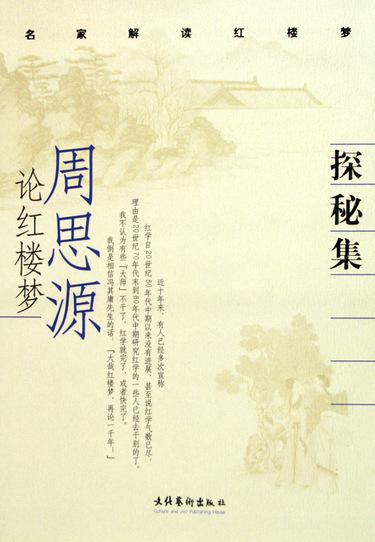 名家解读红楼梦
探秘集
周思源
论红楼梦
近十年来，有人已经多次宣称
红学自20世纪80年代中期以来没有进展，甚至说红学气数已尽，
理由是20世纪70年代末到80年代中期研究红学的一些人已经去干别的了。
我不认为有些「大师」不干了，红学就完了，或者快完了。
我倒是相信冯其庸先生的话：「大哉红楼梦，再论一千年！」
文化艺术出版社
Culture and Art Publishing House